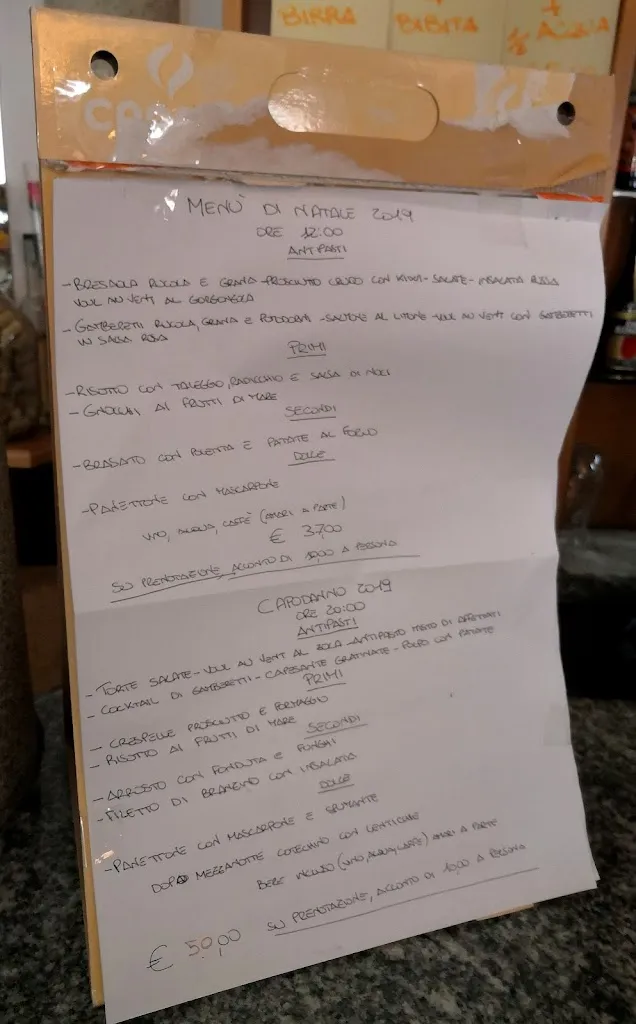 BIRRA
BIBITA
1
½ ACQUA
MENÙ DI NATALE 2019
ORE 12:00
ANTIPASTI
- BRESAOLA RUCOLA E GRANA - PROSCIUTTO CRUDO CON KIWI - SALATE - INSALATA RUSSA
VOUL AU VENT AL GORGONZOLA
- GAMBERETTI RUCOLA, GRANA E POMODORINI - SALMONE AL LIMONE - VOUL AU VENT CON GAMBERETTI
IN SALSA ROSA
PRIMI
- RISOTTO CON TALEGGIO, RADICCHIO E SALSA DI NOCI
- GNOCCHI AI FRUTTI DI MARE
SECONDI
- BRASATO CON POLENTA E PATATE AL FORNO
DOLCE
- PANETTONE CON MASCARPONE
VINO, ACQUA, CAFFÈ (AMARI A PARTE)
€ 37,00
SU PRENOTAZIONE, ACCONTO DI 10,00 A PERSONA
CAPODANNO 2019
ORE 20:00
ANTIPASTI
- TORTE SALATE - VOUL AU VENT AL ZOLA - ANTIPASTO MISTO DI AFFETTATI
- COCKTAIL DI GAMBERETTI - CAPESANTE GRATINATE - POLPO CON PATATE
PRIMI
- CRESPELLE PROSCIUTTO E FORMAGGIO
- RISOTTO AI FRUTTI DI MARE
SECONDI
- ARROSTO CON FONDUTA E FUNGHI
- FILETTO DI BRANZINO CON INSALATA
DOLCE
- PANETTONE CON MASCARPONE E SPUMANTE
DOPO MEZZANOTTE COTECHINO CON LENTICCHIE
BERE INCLUSO (VINO, ACQUA, CAFFÈ) AMARI A PARTE
€ 50,00 SU PRENOTAZIONE, ACCONTO DI 10,00 A PERSONA